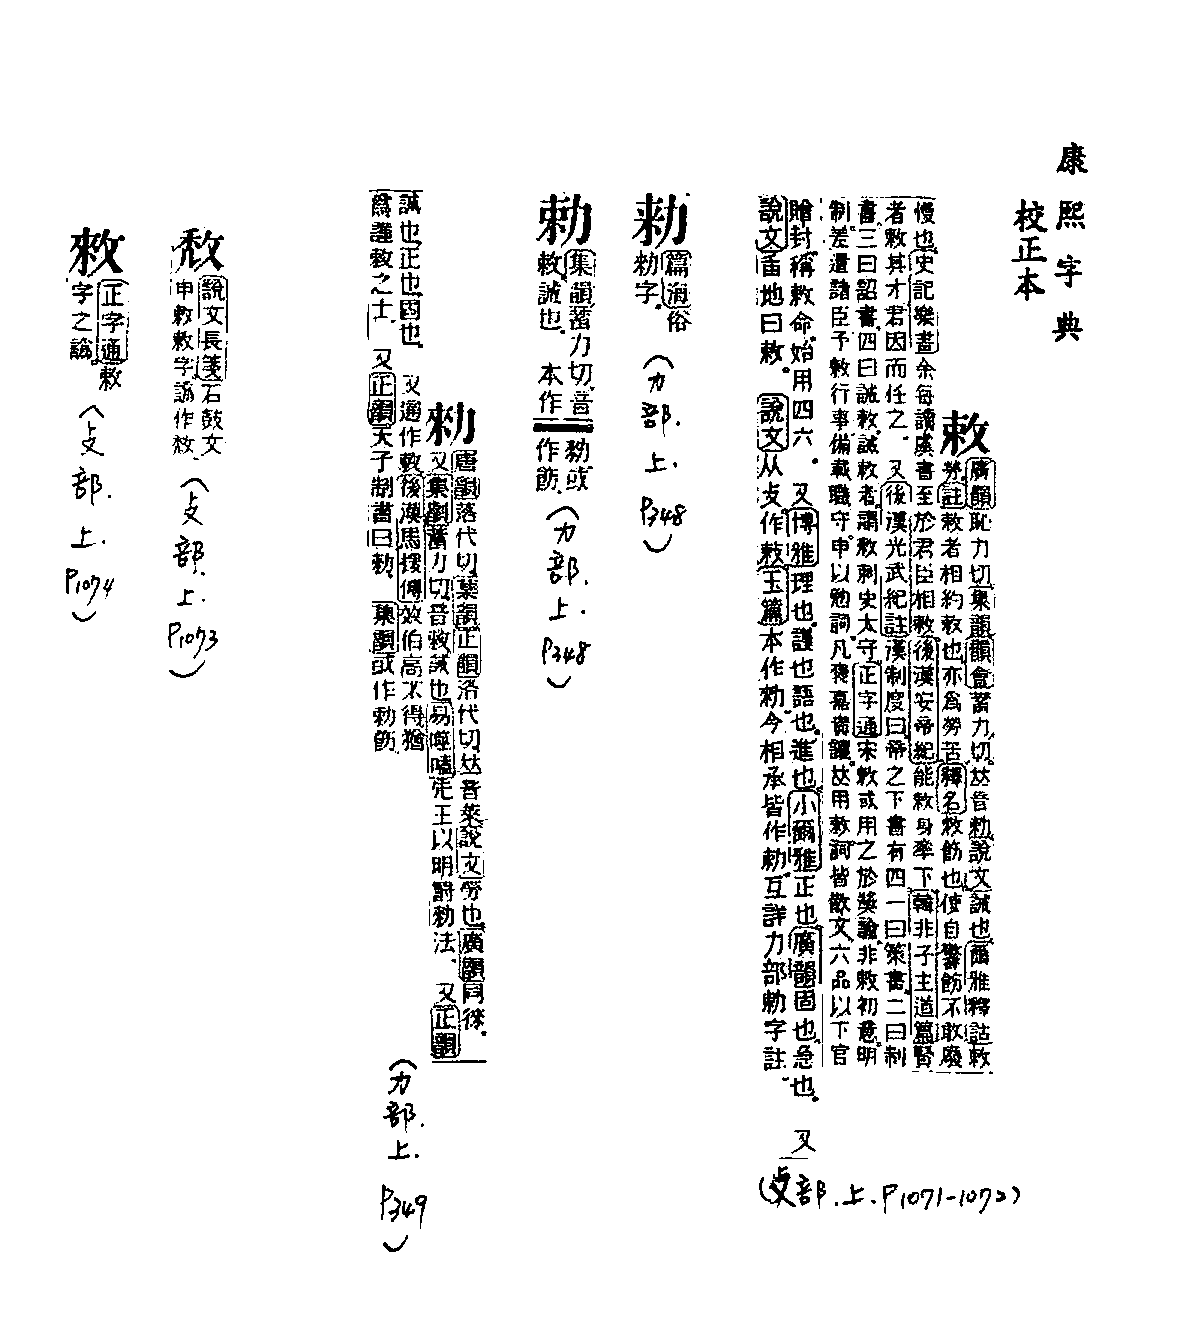 康熙字典
校正本
敕
廣韻恥力切集韻韻會蓄力切𠀤音勅說文誡也爾雅釋詁敕
勞註敕者相約敕也亦為勞苦釋名敕飭也使自警飭不敢廢
慢也史記樂書余每讀虞書至於君臣相敕後漢安帝紀能敕身率下韓非子主道篇賢
者敕其才君因而任之又後漢光武紀註漢制度曰帝之下書有四一曰策書二曰制
書三曰詔書四曰誡敕誡敕者謂敕刺史太守正字通宋敕或用之於獎諭非敕初意明
制差遣諸臣予敕行事備載職守申以勉詞凡褒嘉責讓𠀤用敕詞皆散文六品以下官
贈封稱敕命始用四六又博雅理也謹也語也進也小爾雅正也廣韻固也急也又
說文臿地曰敕說文从攴作敕玉篇本作勑今相承皆作勅互詳力部勅字註
(攴部.上.P1071-1072)
勑
篇海俗
勑字
(力部.上.P348)
勅
集韻蓄力切音
敕誡也本作
勑或
作飭
(力部.上.P348)
勑
唐韻落代切集韻正韻洛代切𠀤音萊說文勞也廣韻同徠
又集韻蓄力切音敕誡也易噬嗑先王以明罰勑法又正韻
誡也正也固也又通作敕後漢馬援傳效伯高不得猶
為謹敕之士又正韻天子制書曰勑集韻或作勅飭
(力部.上.P349)
敇
說文長箋石鼓文
申敕敕字譌作敇
(攴部.上.P1073)
敕
正字通敕
字之譌
(攴部.上.P1074)